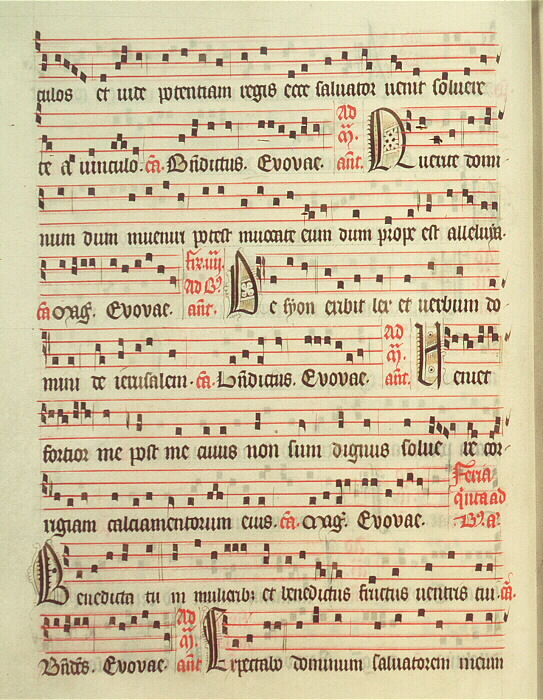 culos et vide potentiam regis ecce salvator venit solvere
te a vinculo. ca. Bndictus. Evovae. Ad m. ant. Querite domi
num dum inveniri potest invocate eum dum prope est alleluya.
ca. Mag. Evovae. fr. iiii. Ad B. ant. De syon exibit lex et verbum do
mini de ierusalem. ca. Bndictus. Evovae. Ad m. ant. Veniet
fortior me post me cuius non sum dignus solve re cor
rigiam calciamentorum eius. ca. Mag. Evovae. Feria quita ad B. a.
Benedicta tu in mulieribz et benedictus fructus ventris tui. ca.
Bndcs. Evovae. Ad m. ant Expectabo dominum salvatorem meum